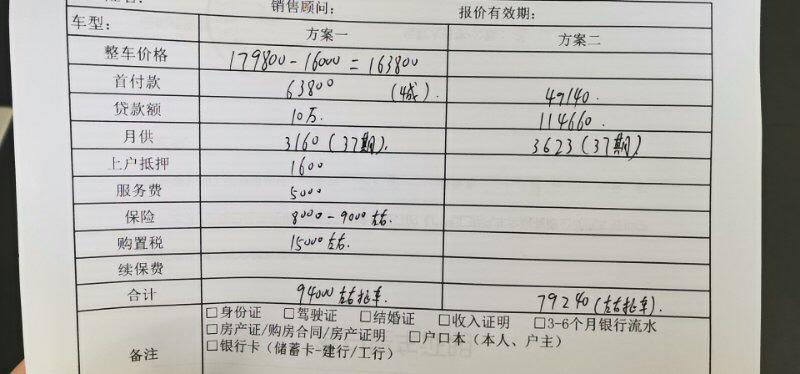 销售顾问： 报价有效期：
车型： 方案一 方案二
整车价格 179800-16000=163800
首付款 63800 (4成). 49140.
贷款额 10万. 114660.
月供 3160(37期). 3623(37期)
上户抵押 1600
服务费 5000
保险 8000-9000左右.
购置税 15000左右.
续保费
合计 94000左右提车. 79240(左右提车).
备注 □身份证 □驾驶证 □结婚证 □收入证明 □3-6个月银行流水
□房产证/购房合同/房产证明 □户口本（本人、户主）
□银行卡（储蓄卡-建行/工行）